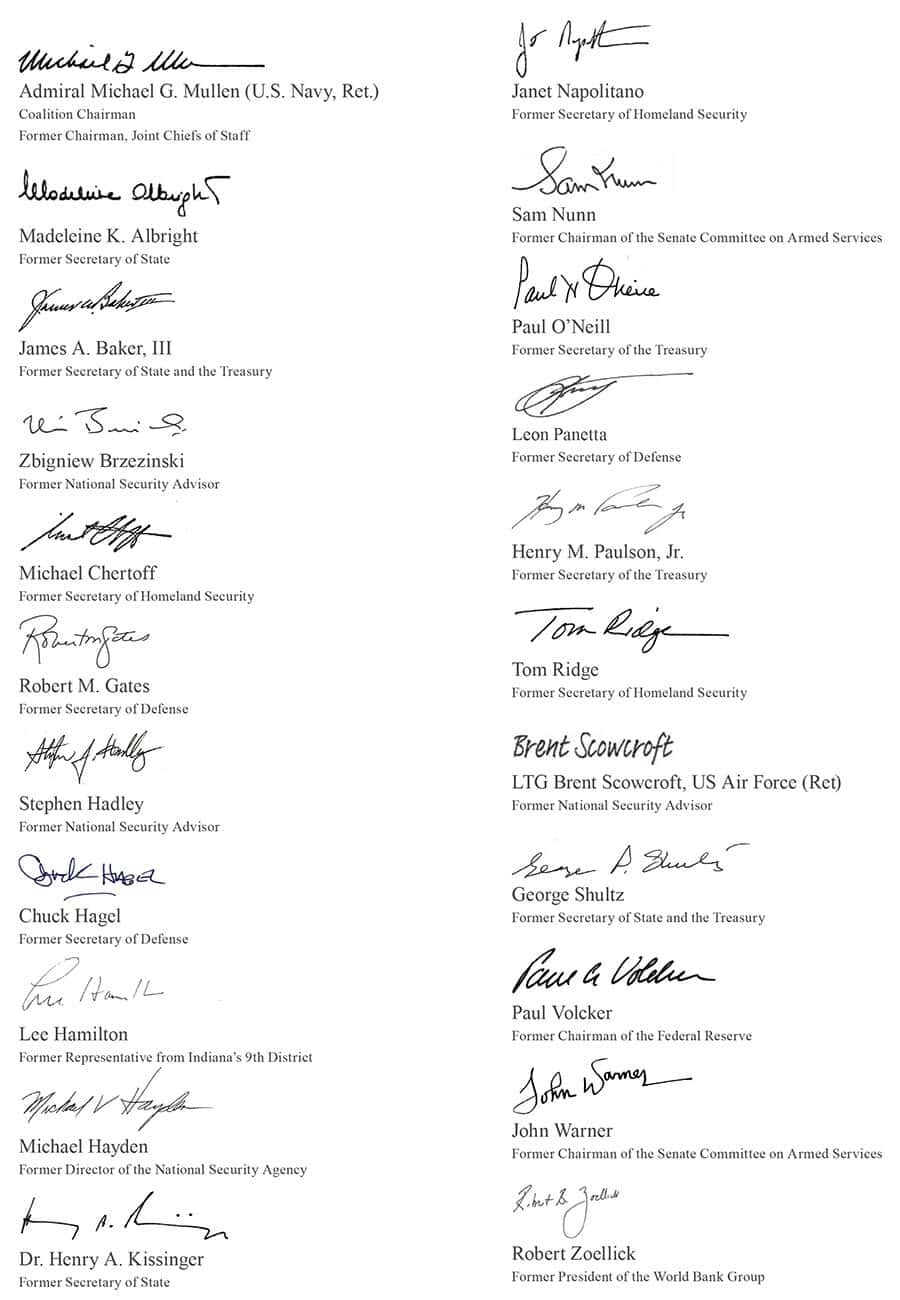 Admiral Michael G. Mullen (U.S. Navy, Ret.)
Coalition Chairman
Former Chairman, Joint Chiefs of Staff
Madeleine Albright
Madeleine K. Albright
Former Secretary of State
James A. Baker, III
Former Secretary of State and the Treasury
Zbigniew Brzezinski
Former National Security Advisor
Michael Chertoff
Former Secretary of Homeland Security
Robert M Gates
Robert M. Gates
Former Secretary of Defense
Stephen J. Hadley
Stephen Hadley
Former National Security Advisor
Chuck HAGEL
Chuck Hagel
Former Secretary of Defense
Lee Hamilton
Former Representative from Indiana's 9th District
Michael V Hayden
Michael Hayden
Former Director of the National Security Agency
Dr. Henry A. Kissinger
Former Secretary of State
Janet Napolitano
Former Secretary of Homeland Security
Sam Nunn
Sam Nunn
Former Chairman of the Senate Committee on Armed Services
Paul H O'Neill
Paul O'Neill
Former Secretary of the Treasury
Leon Panetta
Former Secretary of Defense
Henry M. Paulson, Jr.
Former Secretary of the Treasury
Tom Ridge
Tom Ridge
Former Secretary of Homeland Security
Brent Scowcroft
LTG Brent Scowcroft, US Air Force (Ret)
Former National Security Advisor
George P. Shultz
George Shultz
Former Secretary of State and the Treasury
Paul A Volcker
Paul Volcker
Former Chairman of the Federal Reserve
John Warner
John Warner
Former Chairman of the Senate Committee on Armed Services
Robert B Zoellick
Robert Zoellick
Former President of the World Bank Group